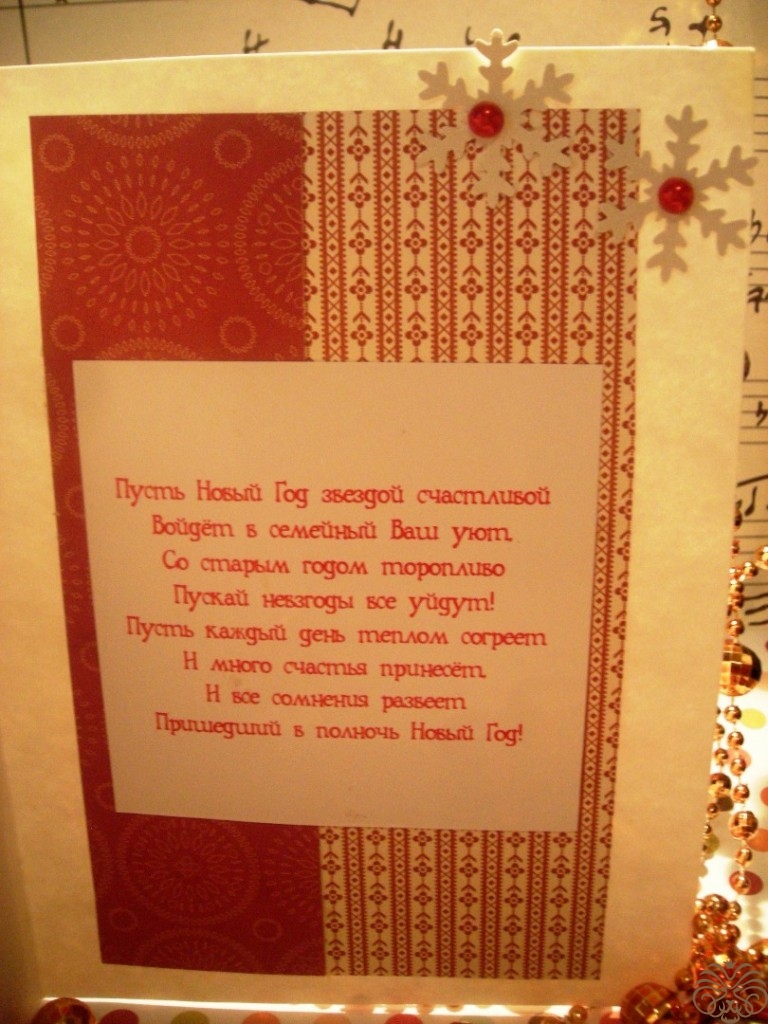 Пусть Новый Год звездой счастливой
Войдёт в семейный Ваш уют,
Со старым годом торопливо
Пускай невзгоды все уйдут!
Пусть каждый день теплом согреет
И много счастья принесёт,
И все сомнения развеет
Пришедший в полночь Новый Год!